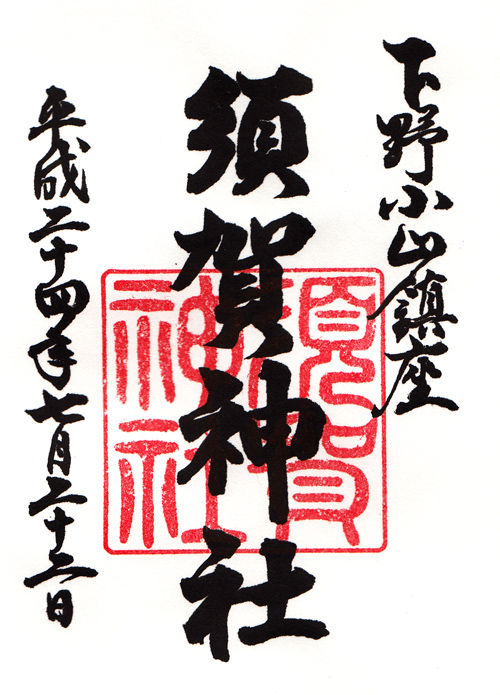 下野小山鎮座
須賀神社
平成二十四年七月二十二日
須賀
神社